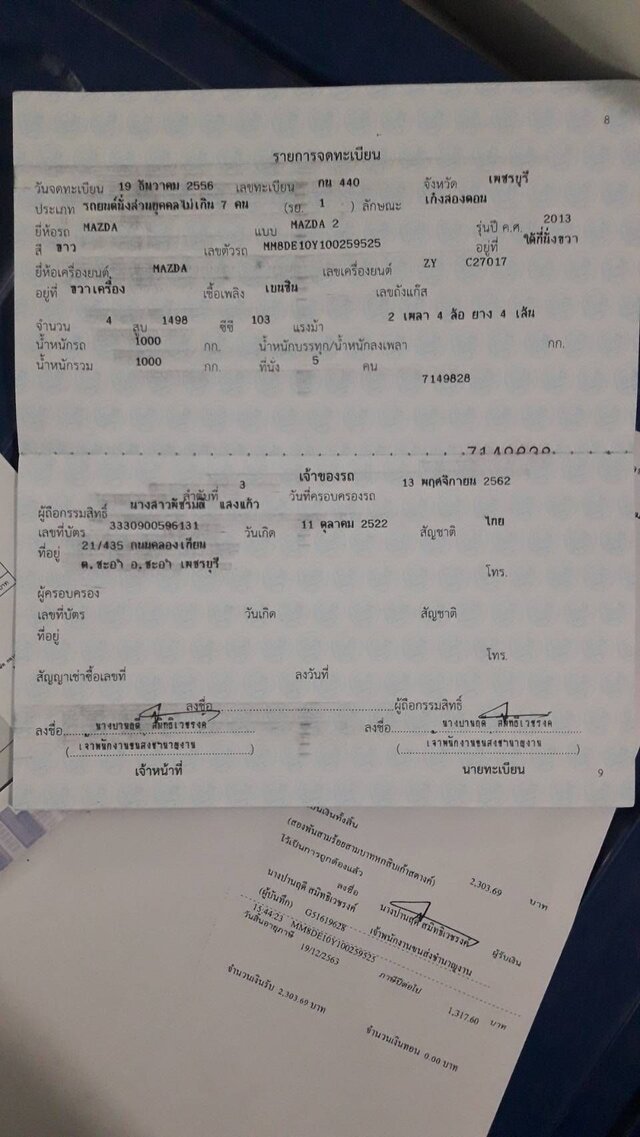 8
รายการจดทะเบียน
วันจดทะเบียน 19 ธันวาคม 2556 เลขทะเบียน กน 440 จังหวัด เพชรบุรี
ประเภท รถยนต์นั่งส่วนบุคคลไม่เกิน 7 คน (รย. 1 ) ลักษณะ เก๋งสองตอน
ยี่ห้อรถ MAZDA แบบ MAZDA 2 รุ่นปี ค.ศ. 2013
สี ขาว เลขตัวรถ MM8DE10Y100259525 อยู่ที่ ใต้ที่นั่งขวา
ยี่ห้อเครื่องยนต์ MAZDA เลขเครื่องยนต์ ZY C27017
อยู่ที่ ขวาเครื่อง เชื้อเพลิง เบนซิน เลขถังแก๊ส
จำนวน 4 สูบ 1498 ซีซี 103 แรงม้า 2 เพลา 4 ล้อ ยาง 4 เส้น
น้ำหนักรถ 1000 กก. น้ำหนักบรรทุก/น้ำหนักลงเพลา กก.
น้ำหนักรวม 1000 กก. ที่นั่ง 5 คน
7149828
เจ้าของรถ
ลำดับที่ 3 วันที่ครอบครองรถ 13 พฤศจิกายน 2562
ผู้ถือกรรมสิทธิ์ นางสาวพัชรมัลี แสงแก้ว
เลขที่บัตร 3330900596131 วันเกิด 11 ตุลาคม 2522 สัญชาติ ไทย
ที่อยู่ 21/435 ถนนคลองเทียน
ต.ชะอำ อ.ชะอำ เพชรบุรี
โทร.
ผู้ครอบครอง
เลขที่บัตร วันเกิด สัญชาติ
ที่อยู่
โทร.
สัญญาเช่าซื้อเลขที่ ลงวันที่
ลงชื่อ ผู้ถือกรรมสิทธิ์
ลงชื่อ นางปานฤดี สมิทธิเวชรงค์ ลงชื่อ นางปานฤดี สมิทธิเวชรงค์
(เจ้าพนักงานขนส่งชำนาญงาน) (เจ้าพนักงานขนส่งชำนาญงาน)
เจ้าหน้าที่ นายทะเบียน
9
เป็นเงินทั้งสิ้น 2,303.69 บาท
(สองพันสามร้อยสามบาทหกสิบเก้าสตางค์)
ไว้เป็นการถูกต้องแล้ว
ลงชื่อ ผู้รับเงิน
นางปานฤดี สมิทธิเวชรงค์ นางปานฤดี สมิทธิเวชรงค์
(ผู้บันทึก) G51619628 เจ้าพนักงานขนส่งชำนาญงาน
15:44:23 MM8DE10Y100259525 ภาษีปีต่อไป 1,317.60 บาท
วันสิ้นอายุภาษี 19/12/2563
จำนวนเงินรับ 2,303.69 บาท จำนวนเงินทอน 0.00 บาท